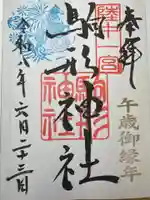 奉拝
陸中一宮
駒形神社
駒形神社
令和八年六月二十三日
午歳御縁年